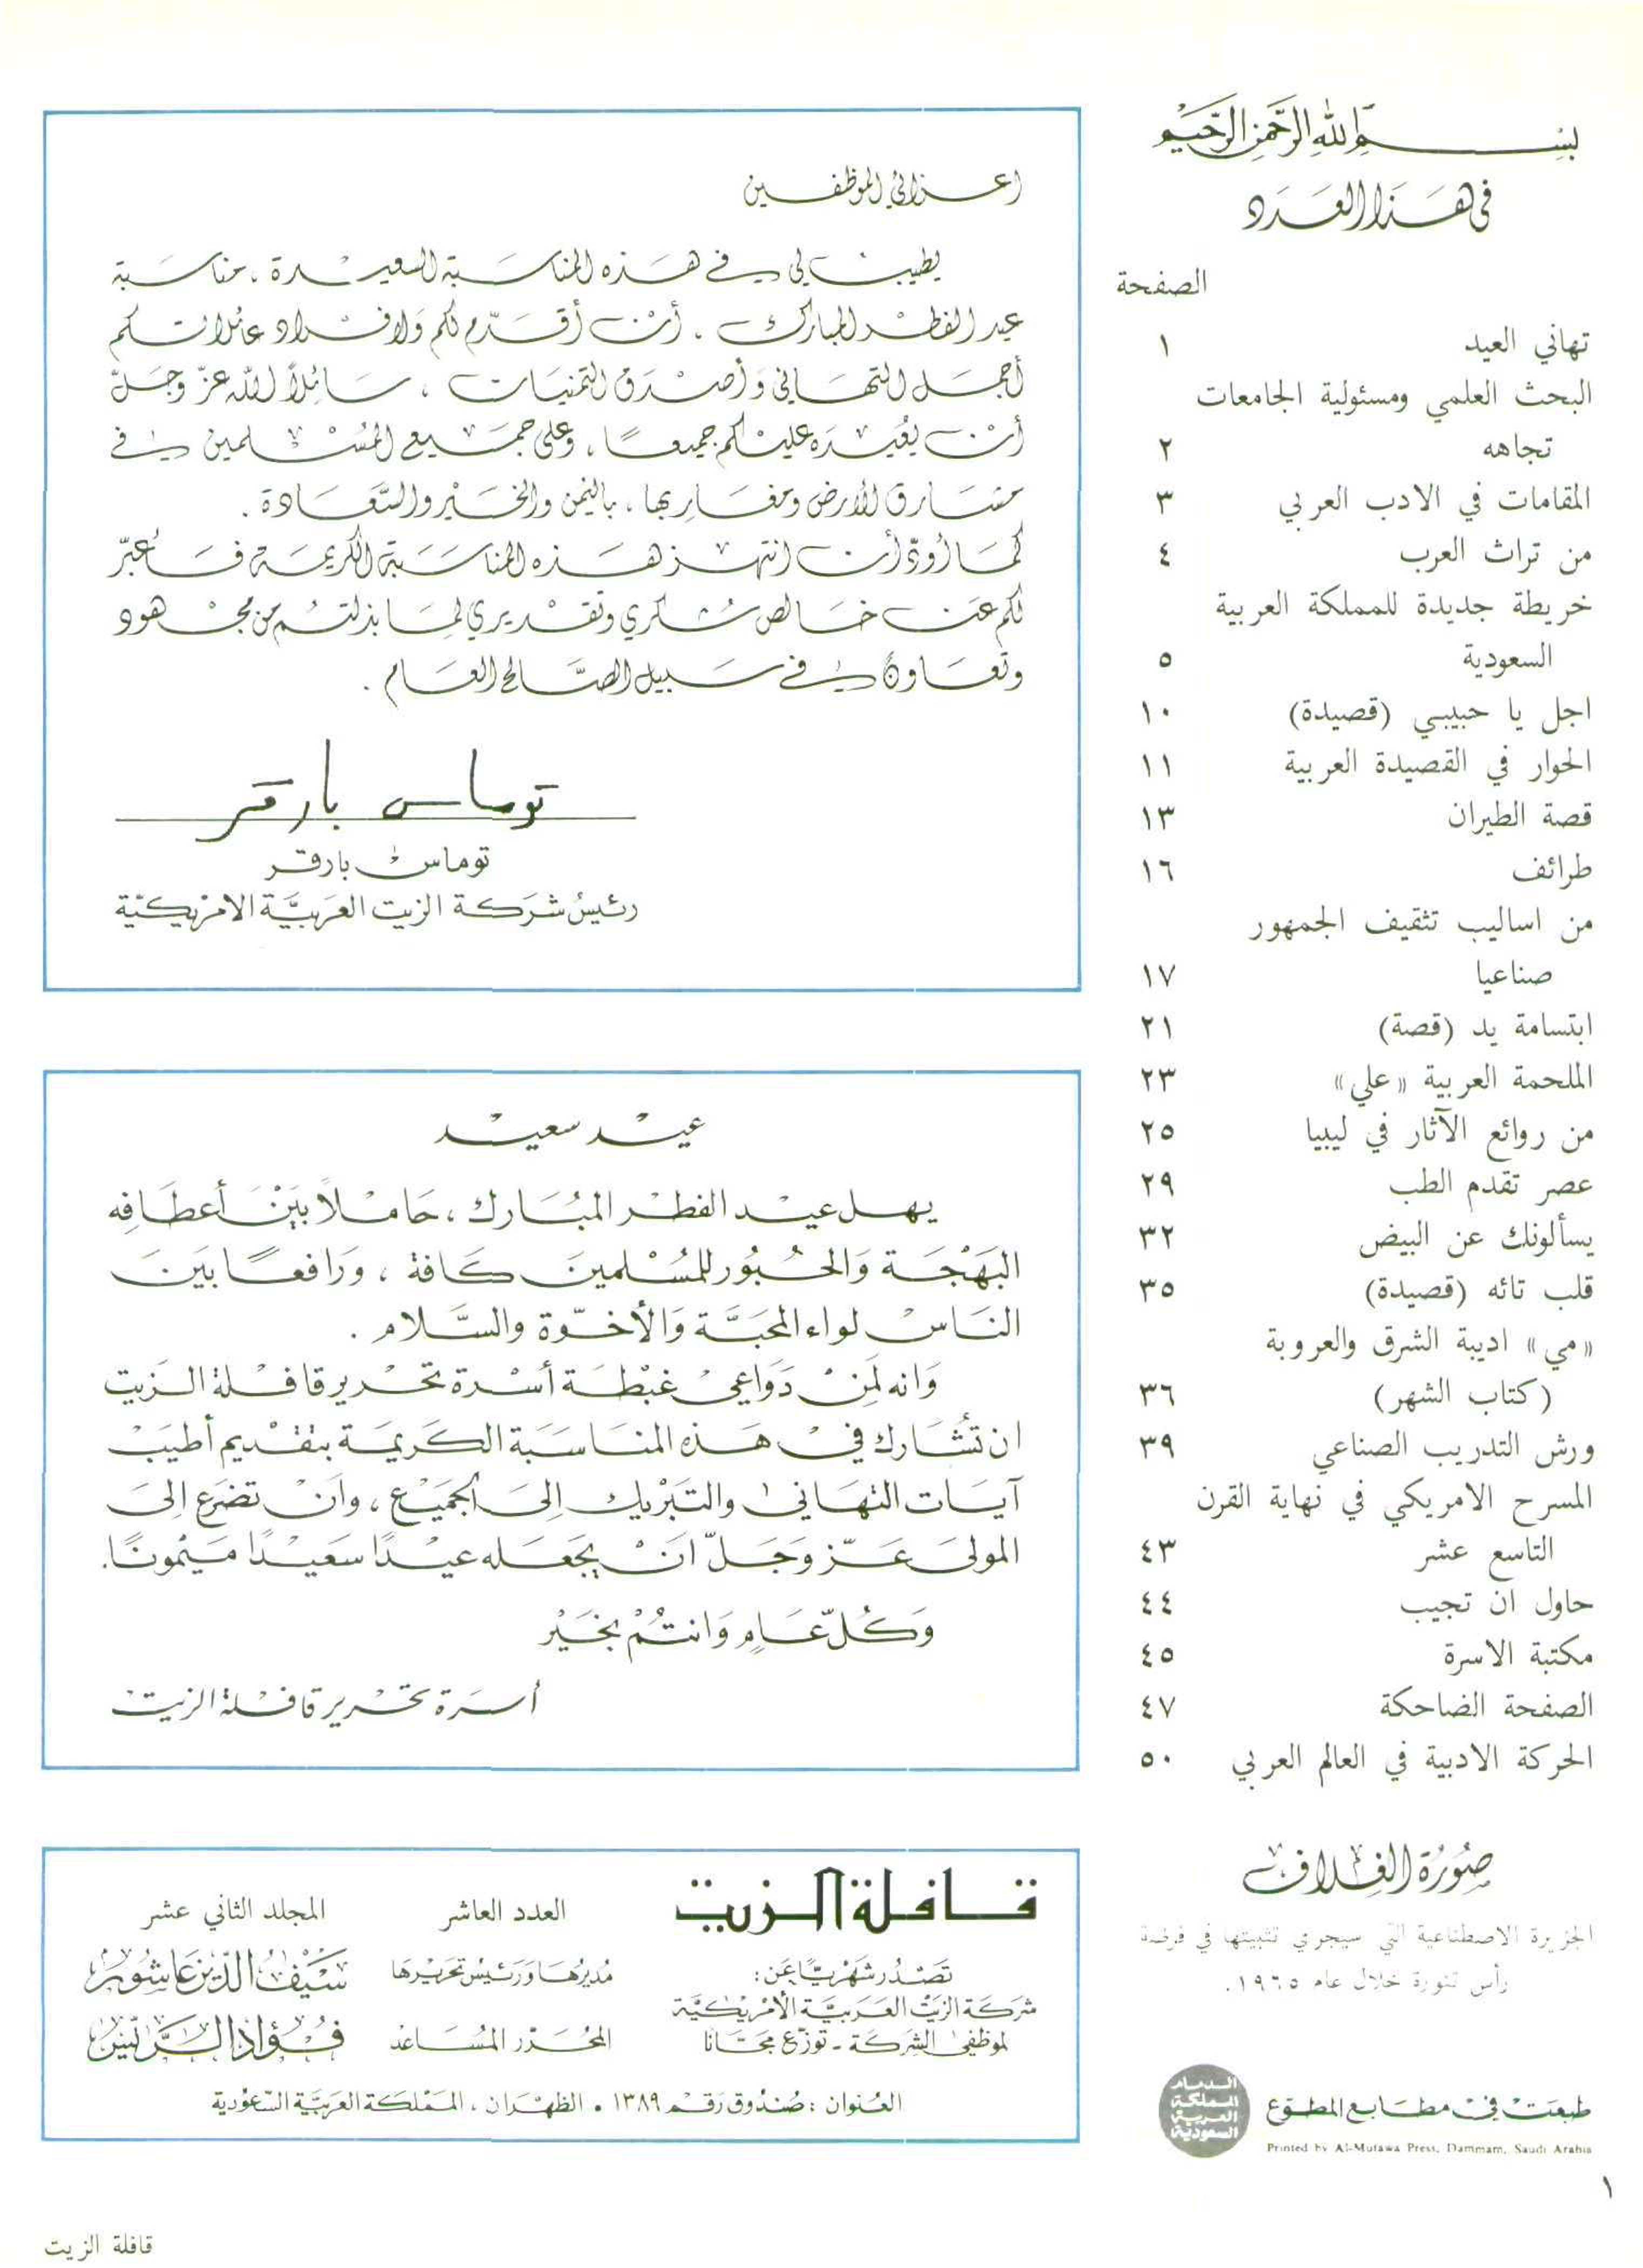 بسم الله الرحمن الرحيم
في هذا العدد
الصفحة
تهاني العيد ١
البحث العلمي ومسئولية الجامعات
تجاهه ٢
المقامات في الادب العربي ٣
من تراث العرب ٤
خريطة جديدة للمملكة العربية
السعودية ٥
اجل يا حبيبي (قصيدة) ١٠
الحوار في القصيدة العربية ١١
قصة الطيران ١٣
طرائف ١٦
من اساليب تثقيف الجمهور
صناعيا ١٧
ابتسامة يد (قصة) ٢١
الملحمة العربية «علي» ٢٣
من روائع الآثار في ليبيا ٢٥
عصر تقدم الطب ٢٩
يسألونك عن البيض ٣٢
قلب تائه (قصيدة) ٣٥
«مي» اديبة الشرق والعروبة
(كتاب الشهر) ٣٦
ورش التدريب الصناعي ٣٩
المسرح الامريكي في نهاية القرن
التاسع عشر ٤٣
حاول ان تجيب ٤٤
مكتبة الاسرة ٤٥
الصفحة الضاحكة ٤٧
الحركة الادبية في العالم العربي ٥٠
صورة الغلاف
الجزيرة الاصطناعية التي سيجري تثبيتها في فرضة
رأس تنورة خلال عام ١٩٦٥.
طبعت في مطابع المطوع
الدمام
المملكة
العربية
السعودية
Printed by Al-Mutawa Press, Dammam, Saudi Arabia
اعزائي الموظفين
يطيب لي في هذه المناسبة السعيدة، مناسبة
عيد الفطر المبارك، أن أقدّم لكم ولافراد عائلاتكم
أجمل التهاني وأصدق التمنيات، سائلاً الله عزّ وجلّ
أن يعيده عليكم جميعًا، وعلى جميع المسلمين في
مشارق الأرض ومغاربها، باليمن والخير والسّعادة.
كما أودّ أن انتهز هذه المناسبة الكريمة فأعبّر
لكم عن خالص شكري وتقديري لما بذلتم من مجهود
وتعاون في سبيل الصّالح العام.
توماس بارقر
توماس بارقر
رئيس شركة الزيت العربيّة الامريكيّة
عيد سعيد
يهل عيد الفطر المُبارك، حَاملاً بَيْن أعطَافِه
البَهْجَة وَالحُبُور للمُسْلمينَ كَافة، وَرَافعًا بَينَ
النَاس لواء المحَبَّة وَالأخوّة والسَّلام.
وَانه لَمِنْ دَوَاعي غبْطَة أسْرة تحْرير قافلة الزيت
ان تُشَارك في هَذه المنَاسَبَة الكَريمَة بتقْديم أطيَبْ
آيَات التهَاني والتبْريك إلىَ الجَميْع، وَانْ تضرَع إلىَ
المولىَ عَزّ وَجَلّ انْ يجَعَله عيْدًا سَعيْدًا مَيْمونًا.
وَكُلّ عَامٍ وَانتُمْ بخَيْر
أسرة تحرير قافلة الزيت
قافلة الزيت
تصْدُر شَهْريًّا عَن:
شركَة الزيْت العَربيَّة الأمْريكيَّة
لموظفي الشركَة - توزّع مجَّانًا
العدد العاشر
المجلد الثاني عشر
مُديرهَا وَرَئيسُ تحَريْرهَا
سَيْفُ الدّين عَاشُور
المحُرّر المُسَاعد
فُؤاد الرَّيّس
العُنوان: صُندُوق رَقم ١٣٨٩ • الظهْرَان، المَمْلكَة العَرَبيَّة السَّعوُدية
١
قافلة الزيت